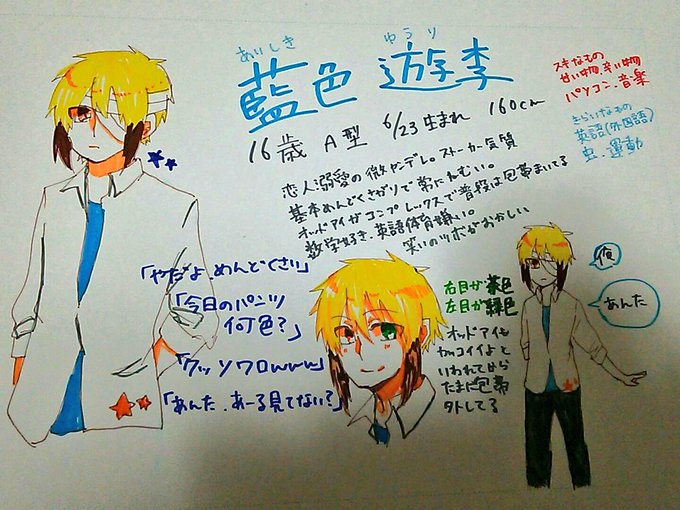 あいしき ゆうり
藍色 遊李
16歳 A型 6/23生まれ 160cm
スキなもの
甘い物、辛い物
パソコン、音楽
きらいなもの
英語(外国語)
虫、運動
恋人溺愛の微ヤンデレ。ストーカー気質
基本めんどくさがりで常にねむい。
オッドアイがコンプレックスで普段は包帯まいてる
数学好き、英語体育嫌い。
笑いのツボがおかしい
「やだよ、めんどくさい」
「今日のパンツ
何色?」
「クッソワロwww」
「あんた、あーる見てない?」
右目が茶色
左目が緑色
オッドアイも
カッコイイよと
いわれてから
たまに包帯
外してる
俺
あんた